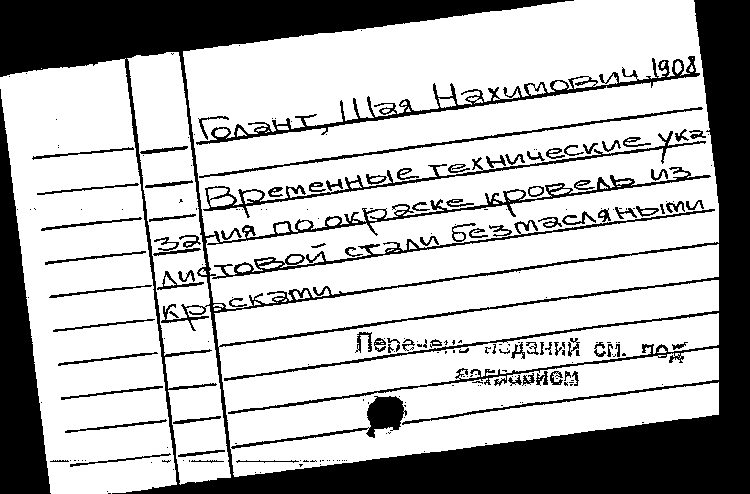 Голант, Шая Нахимович, 1908
Временные технические ука-
зания по окраске кровель из
листовой стали безмасляными
красками.
Перечень изданий см. под
заглавием